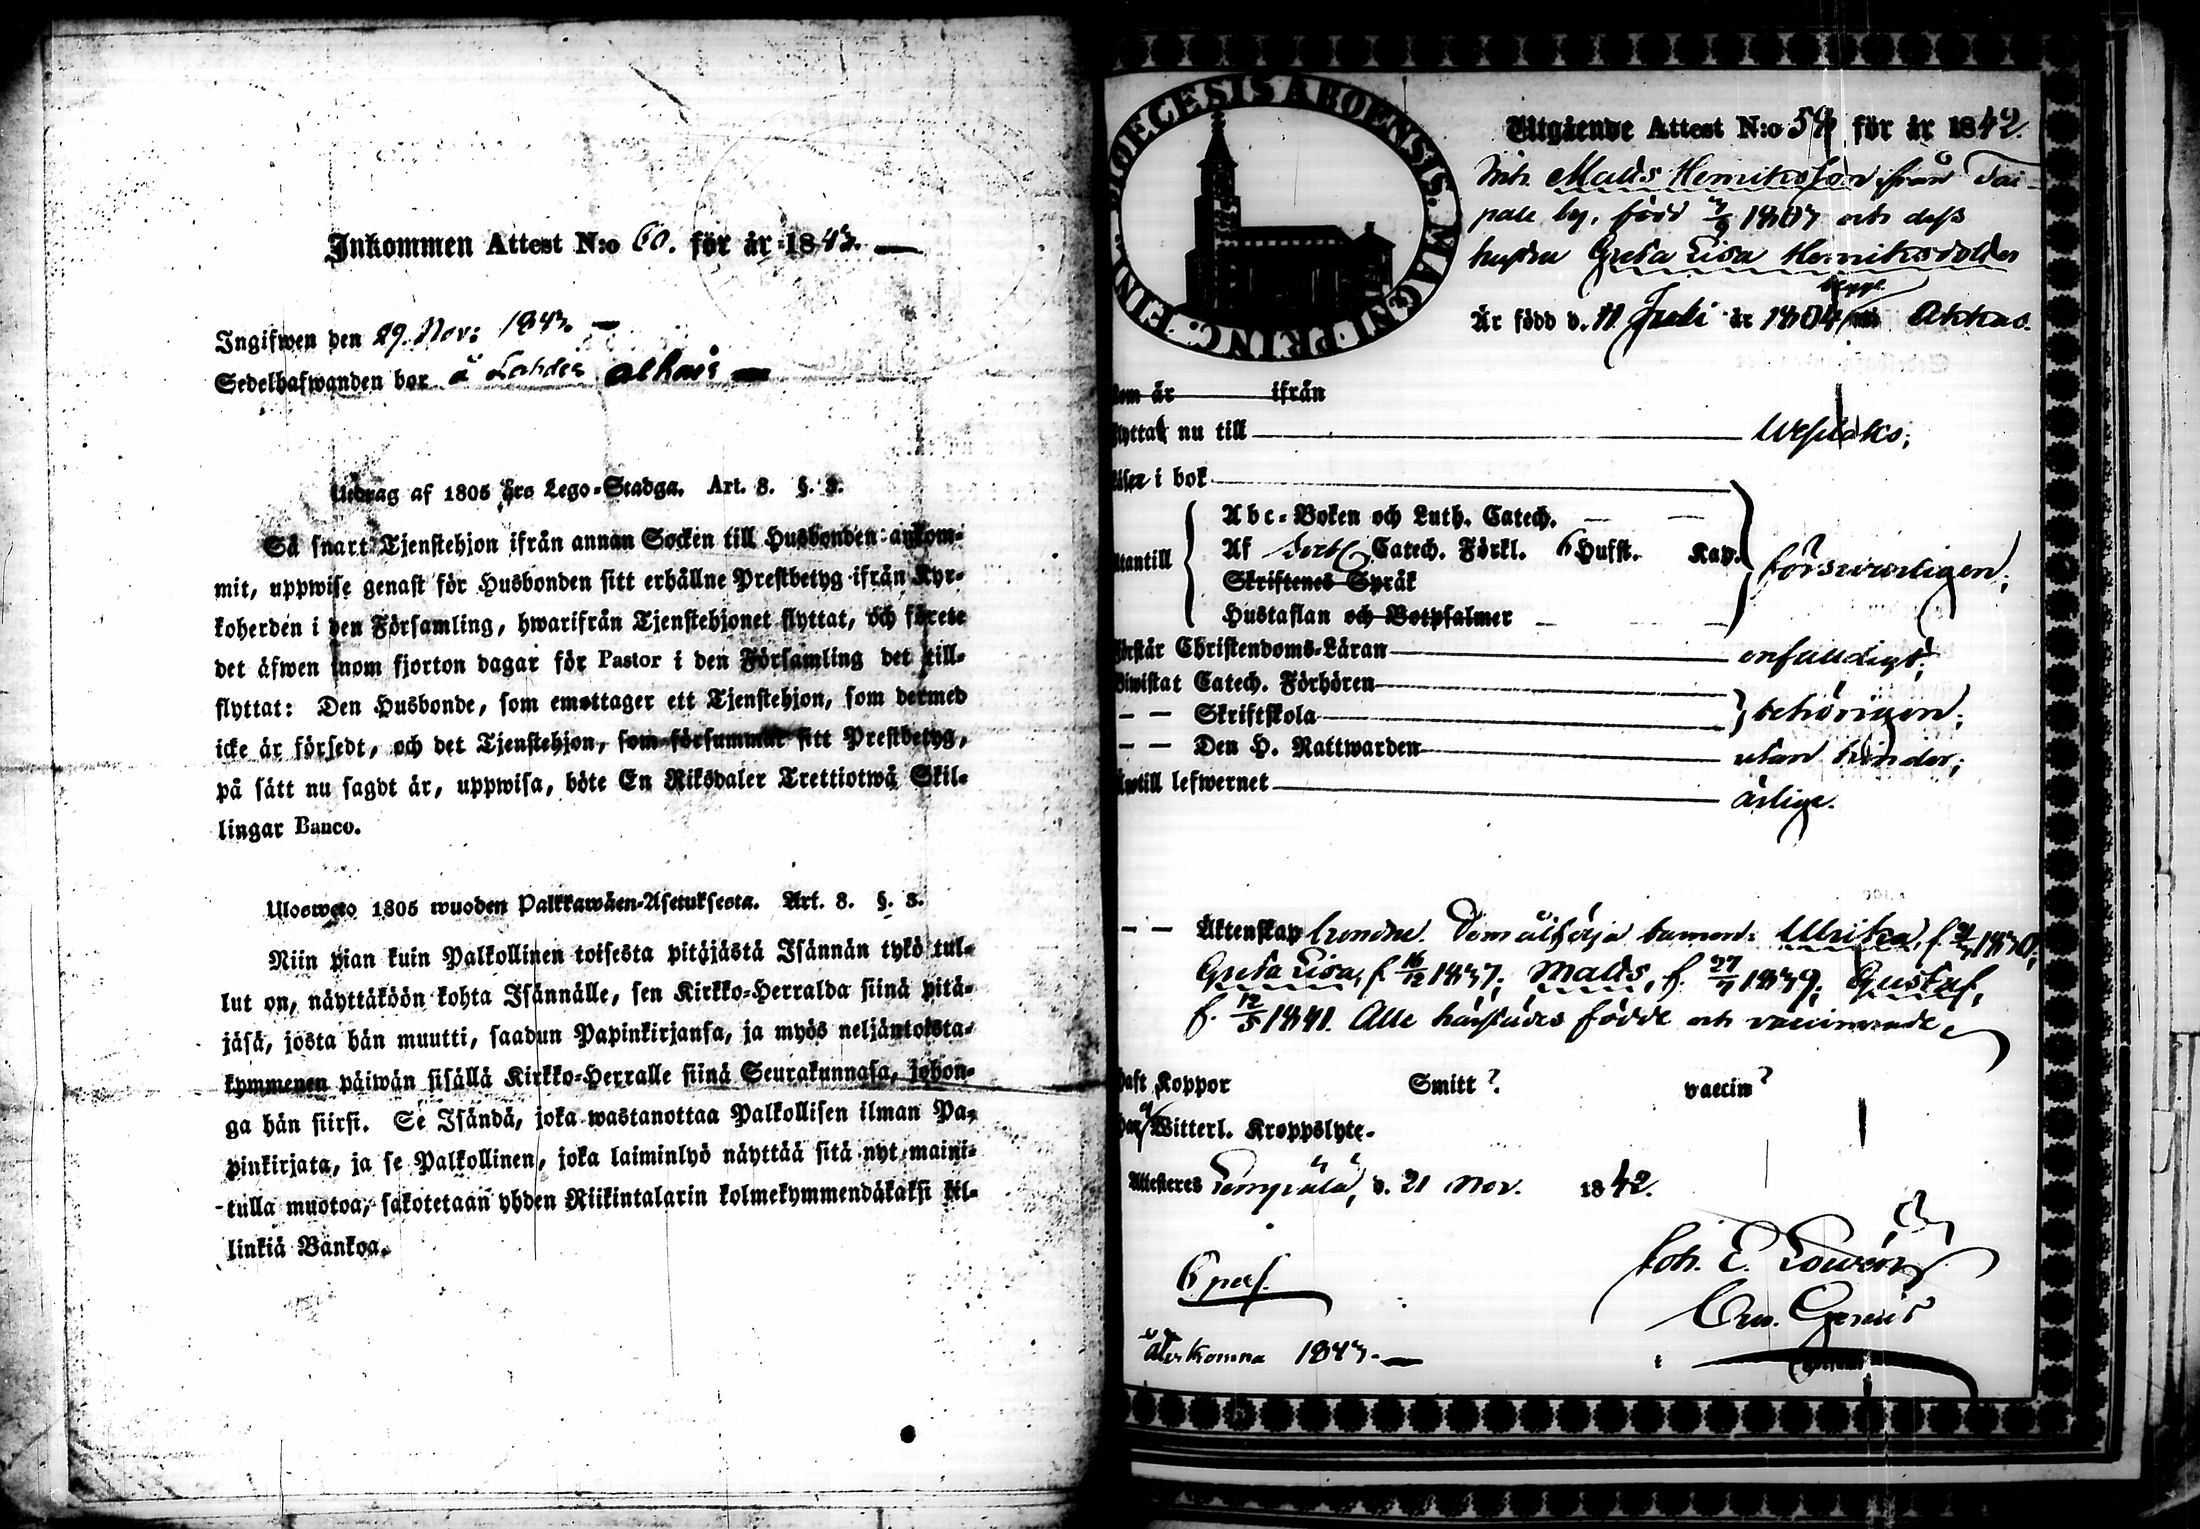 Inkommen Attest N:o 60. för år 1843.
Ingifwen den 29. Nov: 1843.
Sedelhafwanden bor å Lahdis
Utdrag af 1805 års Lego-Stadga. Art. 8. §. 3.
Så snart Tjenstehjon ifrån annan Socken till Husbonden ankom-
mit, uppwise genast för Husbonden sitt erhållne Prestbetyg ifrån Kyr-
koherden i den Församling, hwarifrån Tjenstehjonet flyttat, och förete
det äfwen inom fjorton dagar för Pastor i den Församling det till-
flyttat: Den Husbonde, som emottager ett Tjenstehjon, som dermed
icke är försedt, och det Tjenstehjon, som försummar sitt Prestbetyg,
på sätt nu sagdt är, uppwisa, böte En Riksdaler Trettiotwå Skil-
lingar Banco.
Ulosweto 1805 wuoden Palkkawäen-Asetuksesta. Art. 8. §. 3.
Niin pian kuin Palkollinen toisesta pitäjästä Isännän tykö tul-
lut on, näyttäköön kohta Isännälle, sen Kirkko-Herralda siinä pitä-
jäsä, josta hän muutti, saadun Papinkirjansa, ja myös neljäntoista-
kymmenen päiwän sisällä Kirkko-Herralle siinä Seurakunnasa, johon-
ga hän siirsi. Se Isändä, joka wastanottaa Palkollisen ilman Pa-
pinkirjata, ja se Palkollinen, joka laiminlyö näyttää sitä nyt maini-
tulla muotoa, sakotetaan yhden Riikintalarin kolmekymmendäkaksi kil-
linkiä Bankoa.
DIOECESIS ABOENSIS. MAGNI PRINC. FINL.
Utgående Attest N:o 54 för år 1842.
Inh. Matts Henriksson från Tai-
pale by, född 1807 och dess
hustru Greta Lisa Henriksdotter
begge
Är född d. 11 Juli år 1804 i Akkas.
Som är ifrån
flyttat nu till Wesilaks;
Läser i bok
Abc-Boken och Luth. Catech.
Utantill Af Catech. Förkl. 6 Hufst. Kap. försvarligen;
Skriftenes Språk
Hustaflan och Botpsalmer
Förstår Christendoms-Läran enfaldigt;
Biwistat Catech. Förhören
— — Skriftskola behörigen;
— — Den H. Nattwarden utan hinder;
Intill lefwernet ärliga.
— — Äktenskap Dem åtfölja barnen: Ulrika, f. 1830;
Greta Lisa, f. 16/12 1837; Matts, f. 27/7 1839; Gustaf,
f. 12/5 1841. Alle härstädes födde och vaccinerade
Haft Koppor Smitt? vaccin?
Har Witterl. Kroppslyte.
Attesteres Lempälä, d. 21 Nov. 1842.
Joh. E.
6 pers.
Återkomna 1843.